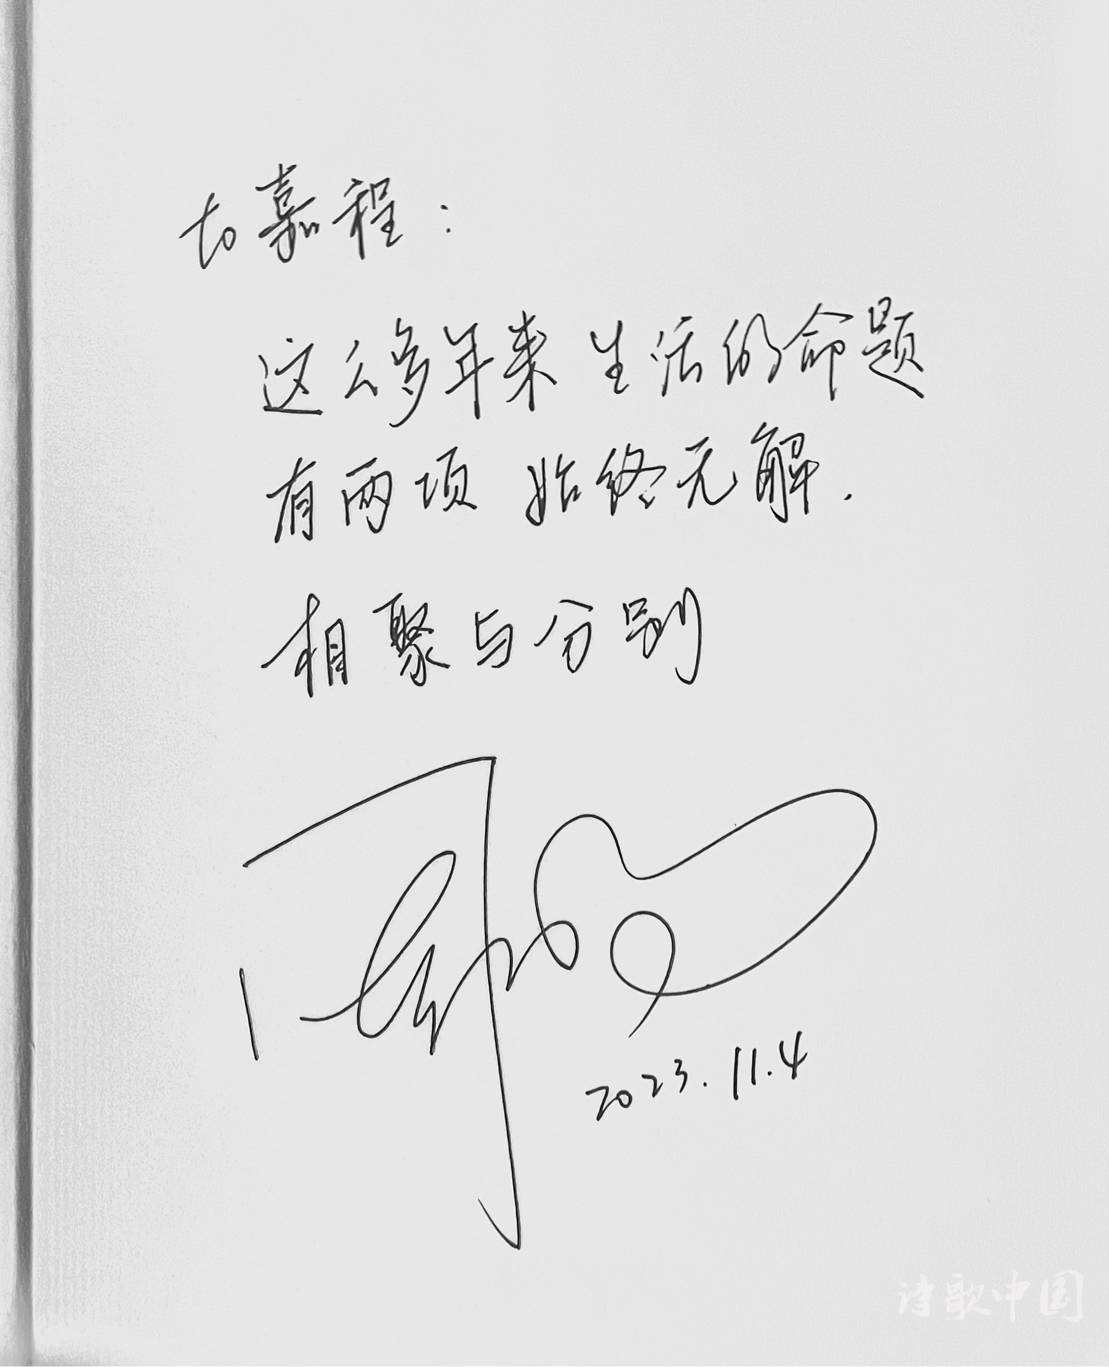 to嘉程：
这么多年来 生活的命题
有两项 始终无解.
相聚与分别
2023.11.4
诗歌中国